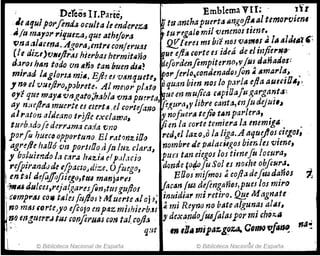 De los II. Parte,
de aquí por senda oculta le endereza
à su mayor riqueza, que atesora
vna alacena. Agora, entre conseruas
(le dize) vuestras hierbas hermitaño
daros han todo vn año tan buen dia?
mirad la gloria mia, Este es vanquete,
y no el vuestro, pobrete. Al menor plato
que maya vn gato, habla vna puerta,
ay nuestra muerte es cierta, el cortesano
al raton aldeano triste exclama,
turbado se derrama cada vno
por su hueco oportuno. El raton zillo
agreste halló vn portillo à su luz clara,
y boluiendo la cara hazia el palacio
respirando de espacio, dize. O fuego,
en tal desassosiego, tus manjares
mas dulces, rejalgares son, tus gustos
compras con tales sustos? Muerte al ojo,
no mas corte, yo escojo en paz mis hierbas
no en guerra tus conseruas con tal coxa
que
Emblema VII. 157
tu ancha puerta angosta al temor viene
tu regalo mil venenos tiene.
QVieres mi bié nos vamos à la aldea?
que esta corte es ideá de el infierno
desorden sempiterno, y sus dañados
por serlo, condenados son à amarla,
quan bien nos lo parla esta auecilla,
que en rustica capilla su garganta
segura, y libre canta, en su desuio,
y no fuera esto tan parlera,
si en la corte temiera la enemiga
red, el lazo, ò la liga. A aquestos ciegos,
nombre de palaciegos bien les viene,
pues tan ciegos los tiene su locura,
donde todo su Sol es noche obscura.
Ellos mismos à costa de sus daños
sacan sus desengaños, pues los miro
inuidiar mi retiro. Que Magnate
à mi Reyno no bate algunas alas,
y dexando sus salas por mi choza
en ella mi paz goza, Como vfano
7.
na-
© Biblioteca Nacional de España
© Biblioteca Nacional de España